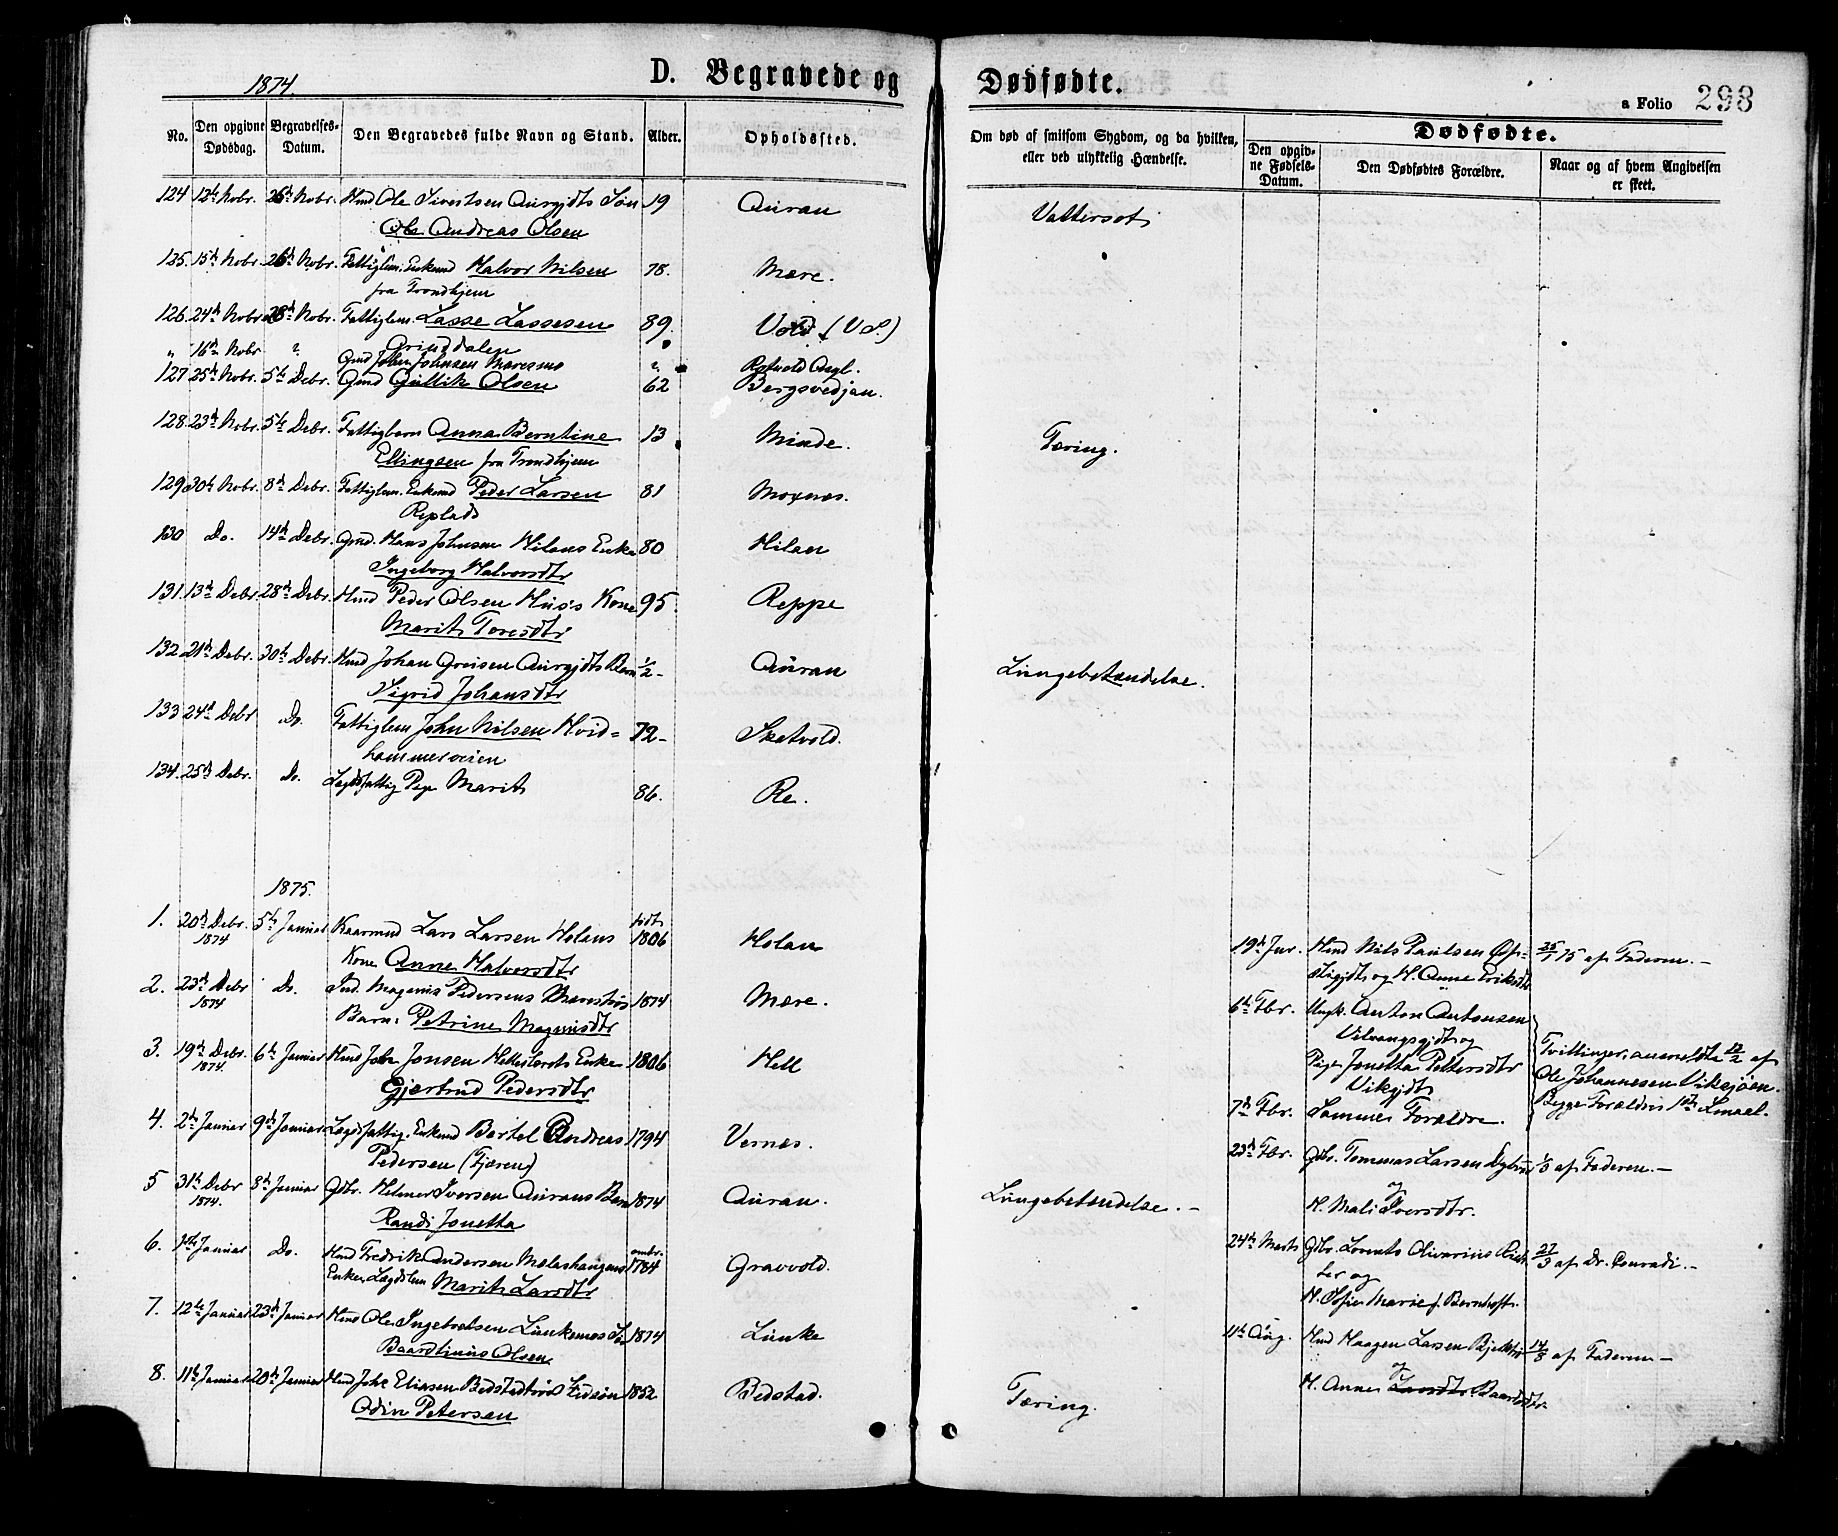 1874
D. Begravede og Dødfødte.
a Folio 298
No. Den opgivne Dødsdag. Begravelses-Datum. Den Begravedes fulde Navn og Stand. Alder. Opholdssted. Om død af smitsom Sygdom, og da hvilken, eller ved ulykkelig Hændelse. Dødfødte.
Den opgivne Fødsels-Datum. Den Dødfødtes Forældre. Naar og af hvem Angivelsen er skeet.
124 12te Nobr. 26de Nobr. Hmd Ole Sivertsen Aurgjdts Søn 19 Auran Vattersot
Ole Andreas Olsen
125. 15de Nobr. 26de Nobr. Fattiglem. Enkmd Halvor Nilsen 78. Mære.
fra Trondhjem
126. 24de Nobr. 28de Nobr. Fattiglem. Lasse Lassesen 89. Vold (V S.)
Grinddalen
" 16de Nobr ? Gmd John Johnsen Maresmo ? Rotvold Asyl.
127 25de Nobr. 5te Debr. Gmd Gullik Olsen 62 Bergsvedjan.
128. 23de Nobr. 5te Debr. Fattigbarn Anna Berntine 13 Minde. Tæring.
Ellingsen fra Trondhjem
129 30te Nobr. 8de Debr. Fattiglem. Enkmd Peder Larsen 81 Moxnes.
Replads
130 Do. 14de Debr. Gmd. Hans Johnsen Hilans Enke 80 Hilan
Ingeborg Halvorsdtr
131. 13de Debr. 28de Debr. Hmd Peder Olsen Hus's Kone 95. Reppe
Marit Toresdtr
132 21de Debr. 30te Debr. Hmd Johan Greisen Aurgjdts Barn 1/2 - Auran Lungebetændelse.
Sigrid Johansdtr
133 24de Debr Do. Fattiglem John Nilsen Hvid= 72 - Sketvold.
hammerveien
134. 25de Debr. Do. Lægdsfattig Pige Marit 86. Re.
1875.
1. 20de Debr. 1874 5te Januar Kaarmd Lars Larsen Holans født 1806 Holan
Kone Anne Halvorsdtr
2. 23de Debr 1874 Do. Ind. Magnus Pedersens Marestrøs 1874 Mære.
Barn. Petrine Magnusdtr
3. 19de Debr. 1874. 6te Januar Hmd John Jonsen Hellstørets Enke 1806 Hell
Gjertrud Pedersdtr
4. 2de Januar 9de Januar Lægdsfattig. Enkmd Bertel Andreas 1794 Vernes.
Pedersen (Tjæren)
5 31te Debr 1874. 8de Januar Gbr. Helmer Iversen Aurans Barn 1874 Auran. Lungebetændelse. -
Randi Jonetta
6. 1ste Januar Do. Hmd Fredrik Andersen Mæleshaugens omtr. 1784 Gravvold.
Enke, Lægdslem Marit Larsdtr
7. 12te Januar 23de Januar Hmd Ole Ingebretsen Lunkemos Søn 1874 Lunke
Baardlinus Olsen
8. 11te Januar 20de Januar Hmd John Eliasen Bedstadtrøs Fedsøn 1852 Bedstad. Tæring.
Odin Petersen
19de Jnr. Hmd Nils Paulsen Øfs= 25/1 75 af Faderen. -
tigjdts og H. Anne Eriksdtr
6te Fbr. Ungk. Anton Antonsen
Vikvangsgjdts og
Pige Jonetta Pettersdtr Tvillinger, anmeldte 12/2 af
Vikgjdts Ole Johannesen Viksjøen.
7de Fbr. Samme Forældre. Begge Forældres 1ste Lmaal.
23de Fbr. Gbr. Tommas Larsen 1/3 af Faderen. -
og
H. Mali Iversdtr.
24de Marts Gbr. Lorents Oliverius Rich= 27/3 af Dr. Conradi. -
ter og
H. Sofie Marie f. Bernhoft.
11te Aug. Hmd Haagen Larsen 14/8 af Faderen -
og
H. Anne Larsdtr. Baardsdtr.